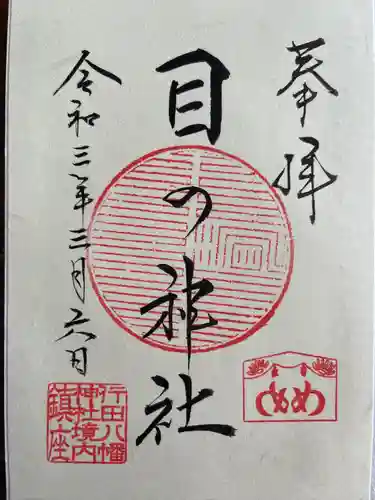 奉拝
目の神社
令和三年三月六日
行田八幡
神社境内
鎮座
めめ